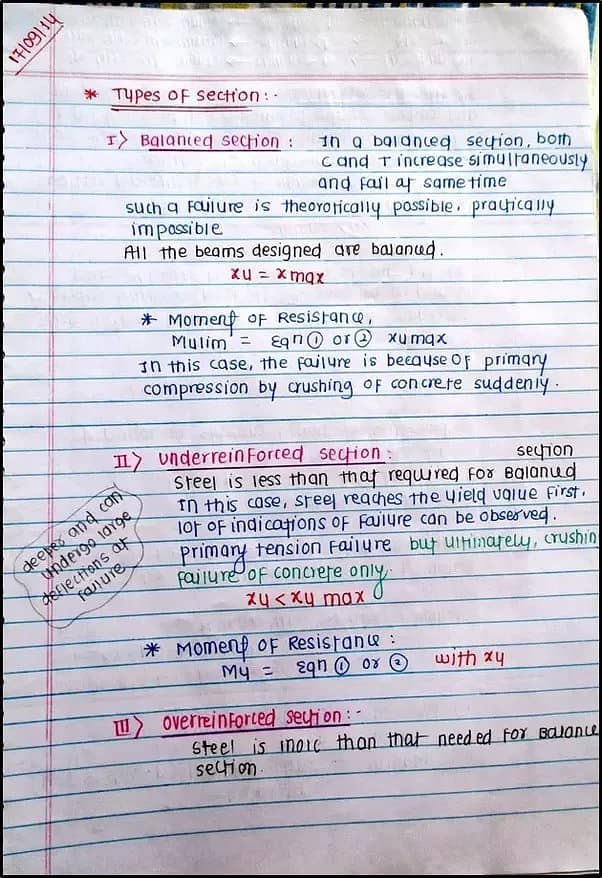 17/09/14
* Types of section :-
I> Balanced section : In a balanced section, both
C and T increase simultaneously
and fail at same time
such a failure is theorotically possible, practically
impossible
All the beams designed are balanced.
xu = xmax
* Moment of Resistance,
Mulim = Eqn ① or ② xumax
In this case, the failure is because of primary
compression by crushing of concrete suddenly.
II> Underreinforced section : section
Steel is less than that required for Balanced
In this case, steel reaches the yield value first.
lot of indications of failure can be observed.
primary tension failure but ultimately, crushin
failure of concrete only.
xu < xu max
deeper and can
undergo large
deflections at
failure
* Moment of Resistance :
Mu = Eqn ① or ② with xu
III> Overreinforced section :-
Steel is more than that needed for Balance
section.